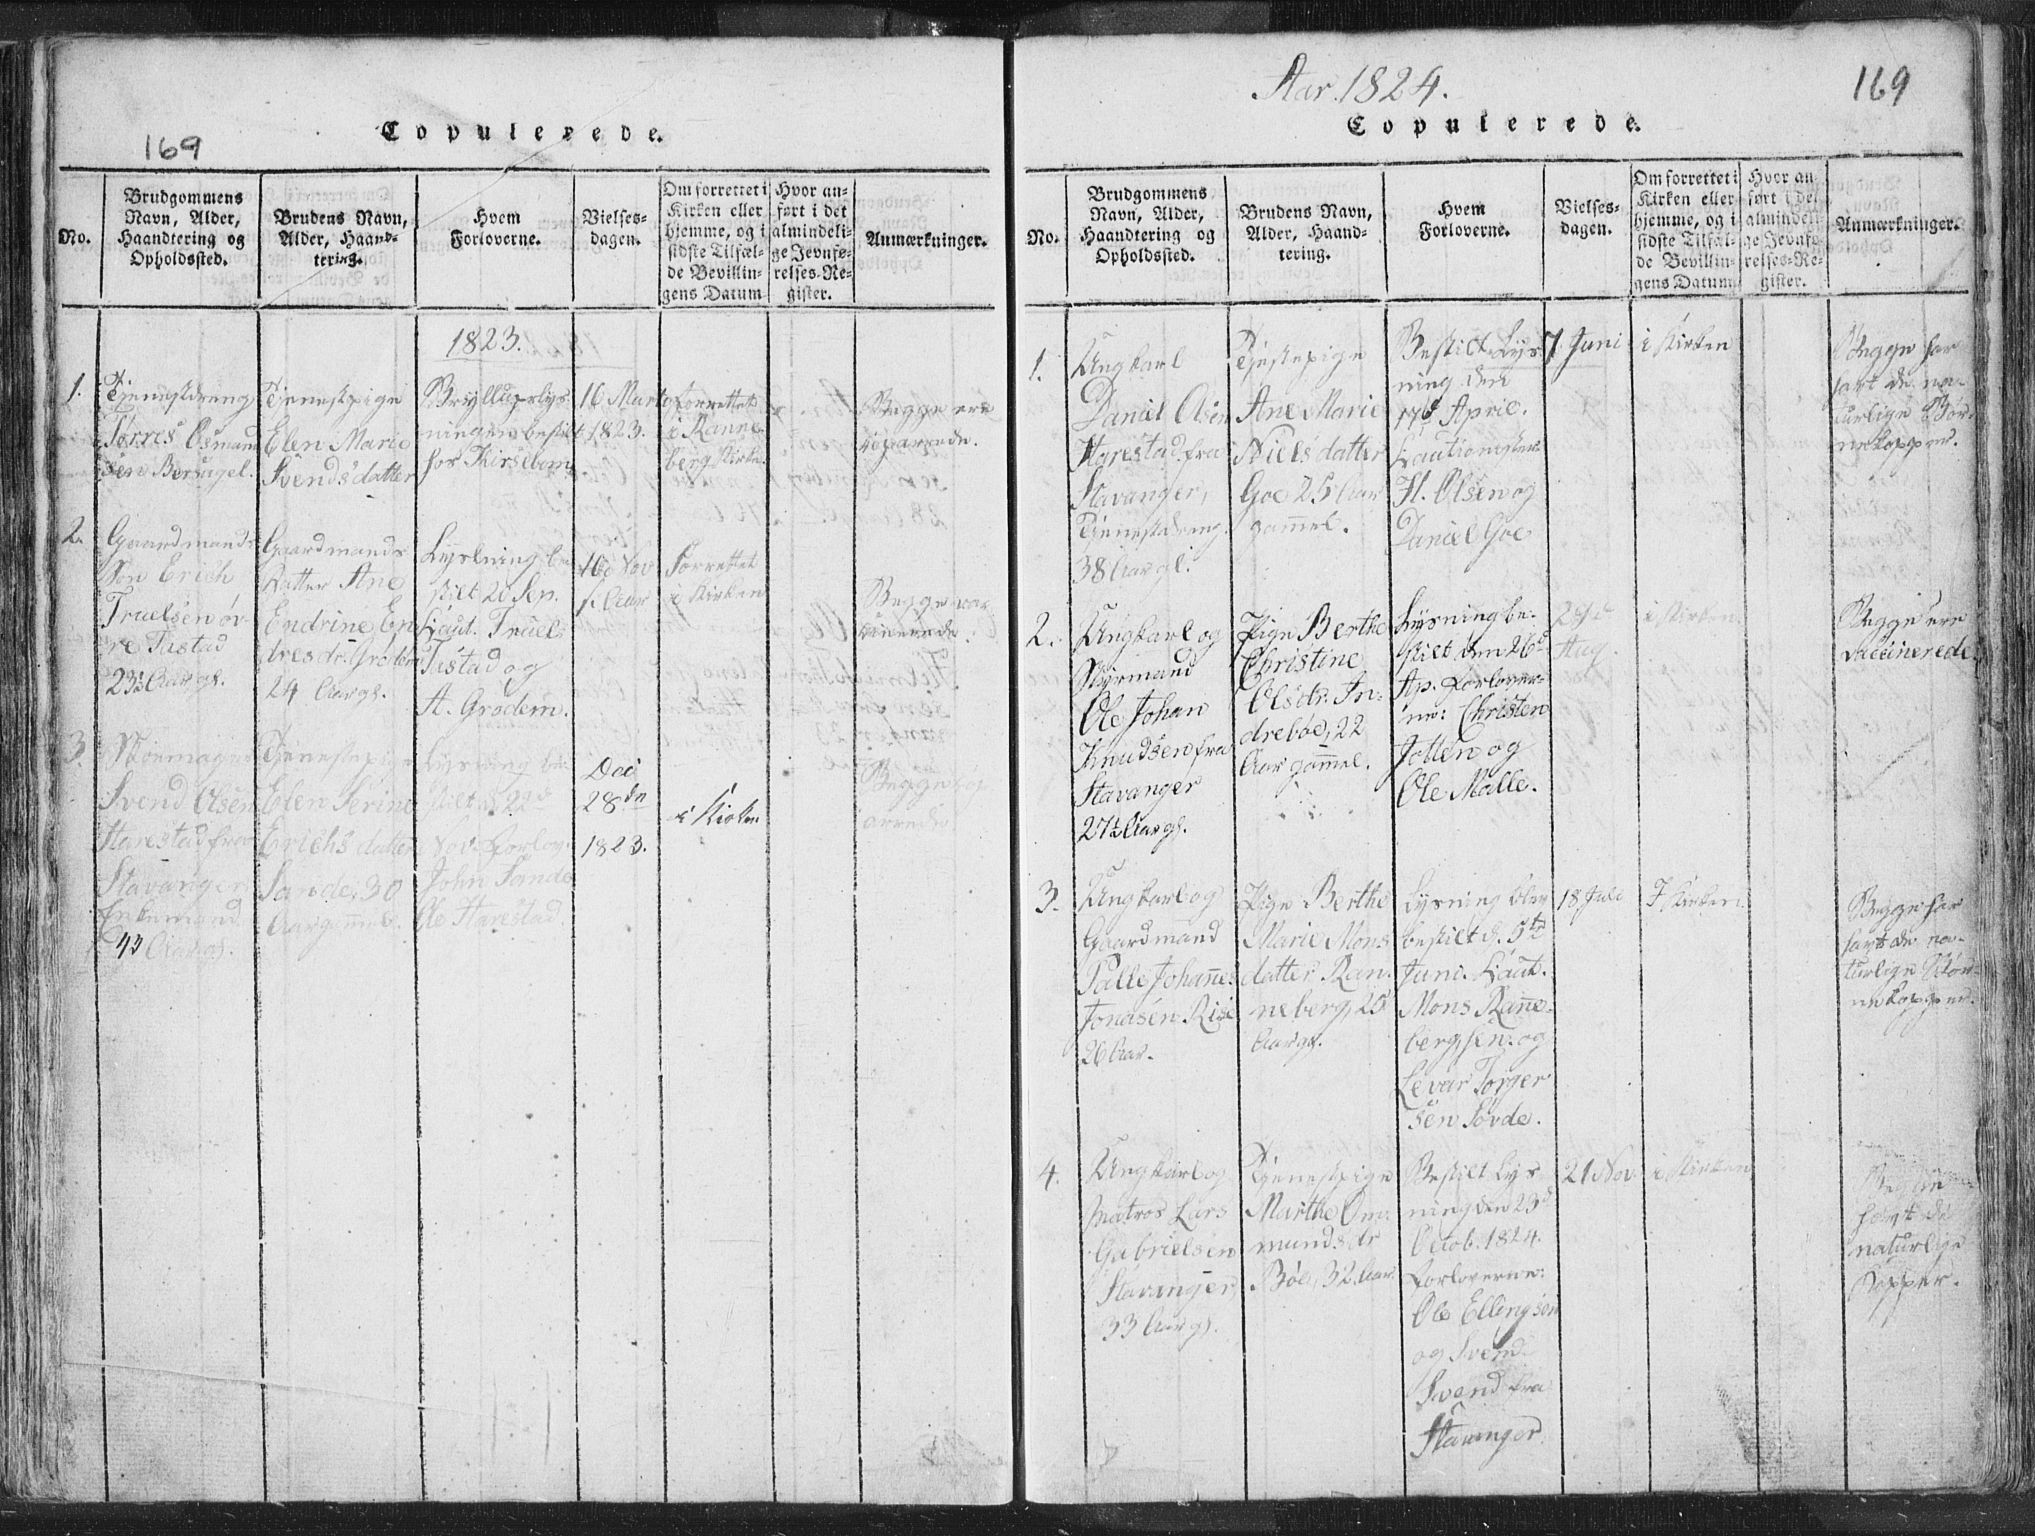 169
Copulerede.
No.
Brudgommens
Navn, Alder,
Haandtering og
Opholdssted.
Brudens Navn,
Alder, Haand-
tering.
Hvem
Forloverne.
Vielses-
dagen.
Om forrettet i
Kirken eller
hjemme, og i
sidste Tilfæl-
de Bevillin-
gens Datum
Hvor an-
ført i det
almindeli-
ge Jevnfø-
relses-Re-
gister.
Anmærkninger.
1823.
1.
Tjenestdreng
Tørres Osmund
sen Bersagel.
Tjenestpige
Elen Marie
Svendsdatter
Bryllupslys
ningen bestilt
hos Kirsebom
16 Marts
1823.
forrettet
i Ranne-
berg Kirke.
Begge ere
2.
Gaardmands
Søn Erich
Truelsen øv-
re Tastad
23½ Aar gl.
Gaardmands
Datter Ane
Endrine En
dresdr. Grødem
24 Aar gl.
Lyslning be
stilt 20 Sep.
Caut. Truel
Tastad og
A. Grødem.
16 Nov
s. Aar
Forrettet
i Kirken
Begge vac
cinerede.
3.
Skoemager
Svend Olsen
Harestad fra
Stavanger
Enkemand
43 Aar gl.
Tjenestepige
Elen Serine
Erichsdatter
Sande, 30
Aar gam̄el.
Lysning be
stilt d. 22d
Nov. Forlov.
John Sande
Ole Harestad.
Dec
28de
1823.
i Kirken
Begge
Aar 1824.
169
Copulerede.
No.
Brudgommens
Navn, Alder,
Haandtering og
Opholdssted.
Brudens Navn,
Alder, Haand-
tering.
Hvem
Forloverne.
Vielses-
dagen.
Om forrettet i
Kirken eller
hjemme, og i
sidste Tilfæl-
de Bevillin-
gens Datum
Hvor an-
ført i det
almindeli-
ge Jevnfø-
relses-Re-
gister.
Anmærkninger.
1.
Ungkarl
Daniel Olsen
Hyrestad fra
Stavanger,
Tjenestdreng
38 Aar gl.
Tjenstepige
Ane Marie
Nielsdatter
Goe 25 Aar
gam̄el.
Bestilt Lys
ning den
17d Apric.
Cautionister
H. Olsen og
Daniel Goe
7 Juni
i Kirken
Begge har
havt de na-
turlige Bør-
nekopper.
2.
Ungkarl og
Styrmand
Ole Johan
Knudsen fra
Stavanger
27½ Aar gl.
Pige Berthe
Christine
Olsdr. In-
drebøe, 22
Aar gam̄el.
Lysning be-
stilt den 26d
Ap. Forlover-
ne: Christen
Jotten og
Ole Malle.
Aug.
i Kirken
Begge ere
vaccinerede.
3.
Ungkarl og
Gaardmand
Palle Johan̄es
Jonasen Rise
26 Aar.
Pige Berthe
Marie Mons
datter Ran-
neberg, 25
Aar gl.
Lysning blev
bestilt d. 5td
Juni. Caut.
Mons Ran̄e-
berg sen. og
Levar Torger
sen Søvde.
18 Juli
I Kirken
Begge har
havt de na-
turlige Bør-
nekopper.
4.
Ungkarl og
Matros Lars
Gabrielsen
Stavanger
33 Aar gl.
Tjenestpige
Marthe Om-
mundsdr
Bøe, 32 Aar
Bestilt Lys
ning den 23d
Octob. 1824.
Forloverne:
Ole Ellingsen
og Svend
Svend fra
Stavanger
21 Nov.
i Kirken
Begge
havt de
naturlige
Kopper.